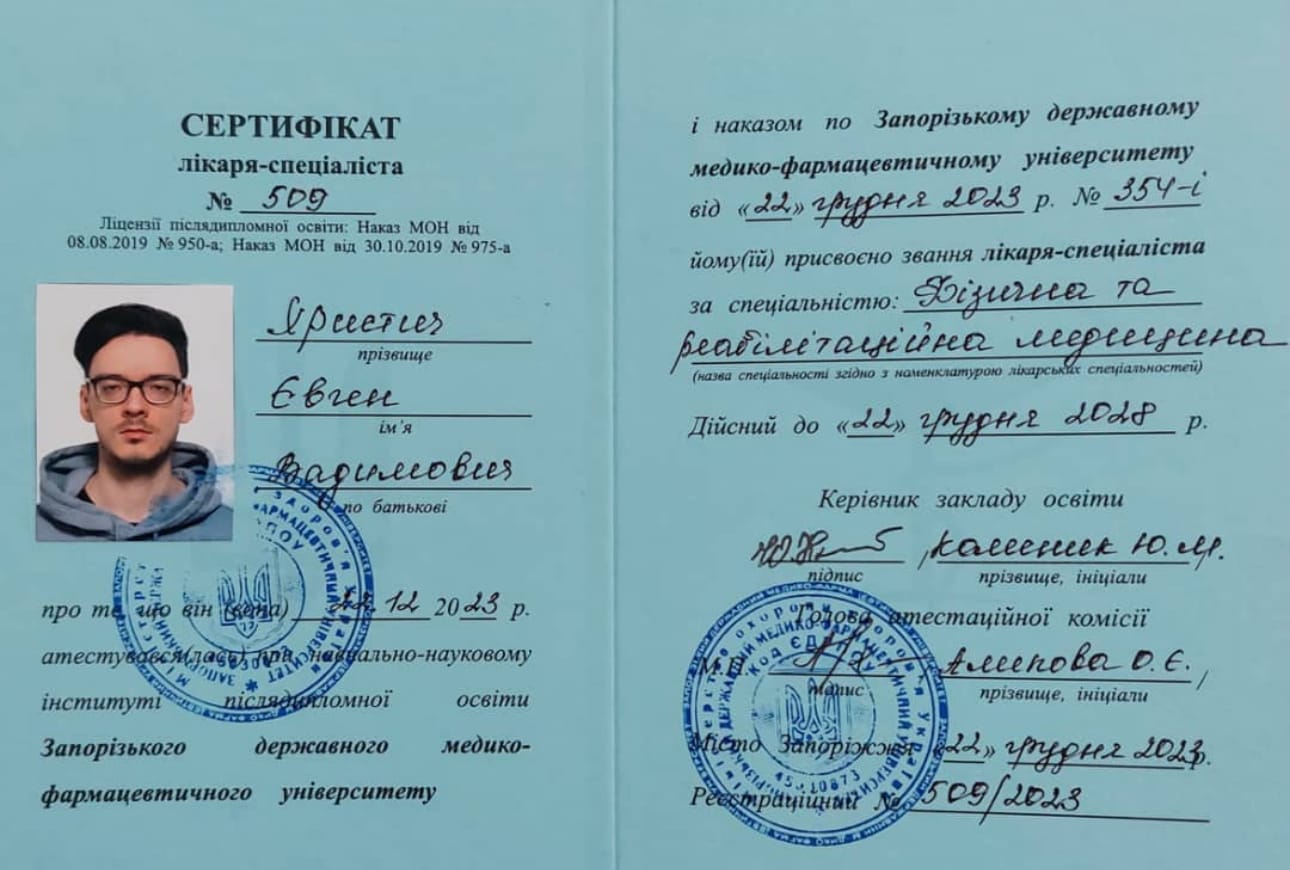 СЕРТИФІКАТ
лікаря-спеціаліста
№ 509
Ліцензії післядипломної освіти: Наказ МОН від
08.08.2019 № 950-а; Наказ МОН від 30.10.2019 № 975-а
Христич
прізвище
Євген
ім'я
Вадимович
по батькові
про те, що він (вона) 22.12 2023 р.
атестувався(лась) при навчально-науковому
інституті післядипломної освіти
Запорізького державного медико-
фармацевтичного університету
і наказом по Запорізькому державному
медико-фармацевтичному університету
від «22» грудня 2023 р. № 354-і
йому(їй) присвоєно звання лікаря-спеціаліста
за спеціальністю: Фізична та
реабілітаційна медицина
(назва спеціальності згідно з номенклатурою лікарських спеціальностей)
Дійсний до «22» грудня 2028 р.
Керівник закладу освіти
Ю.М.
підпис прізвище, ініціали
Голова атестаційної комісії
М.П. О.Є.
підпис прізвище, ініціали
Місто Запоріжжя «22» грудня 2023р.
Реєстраційний № 509/2023